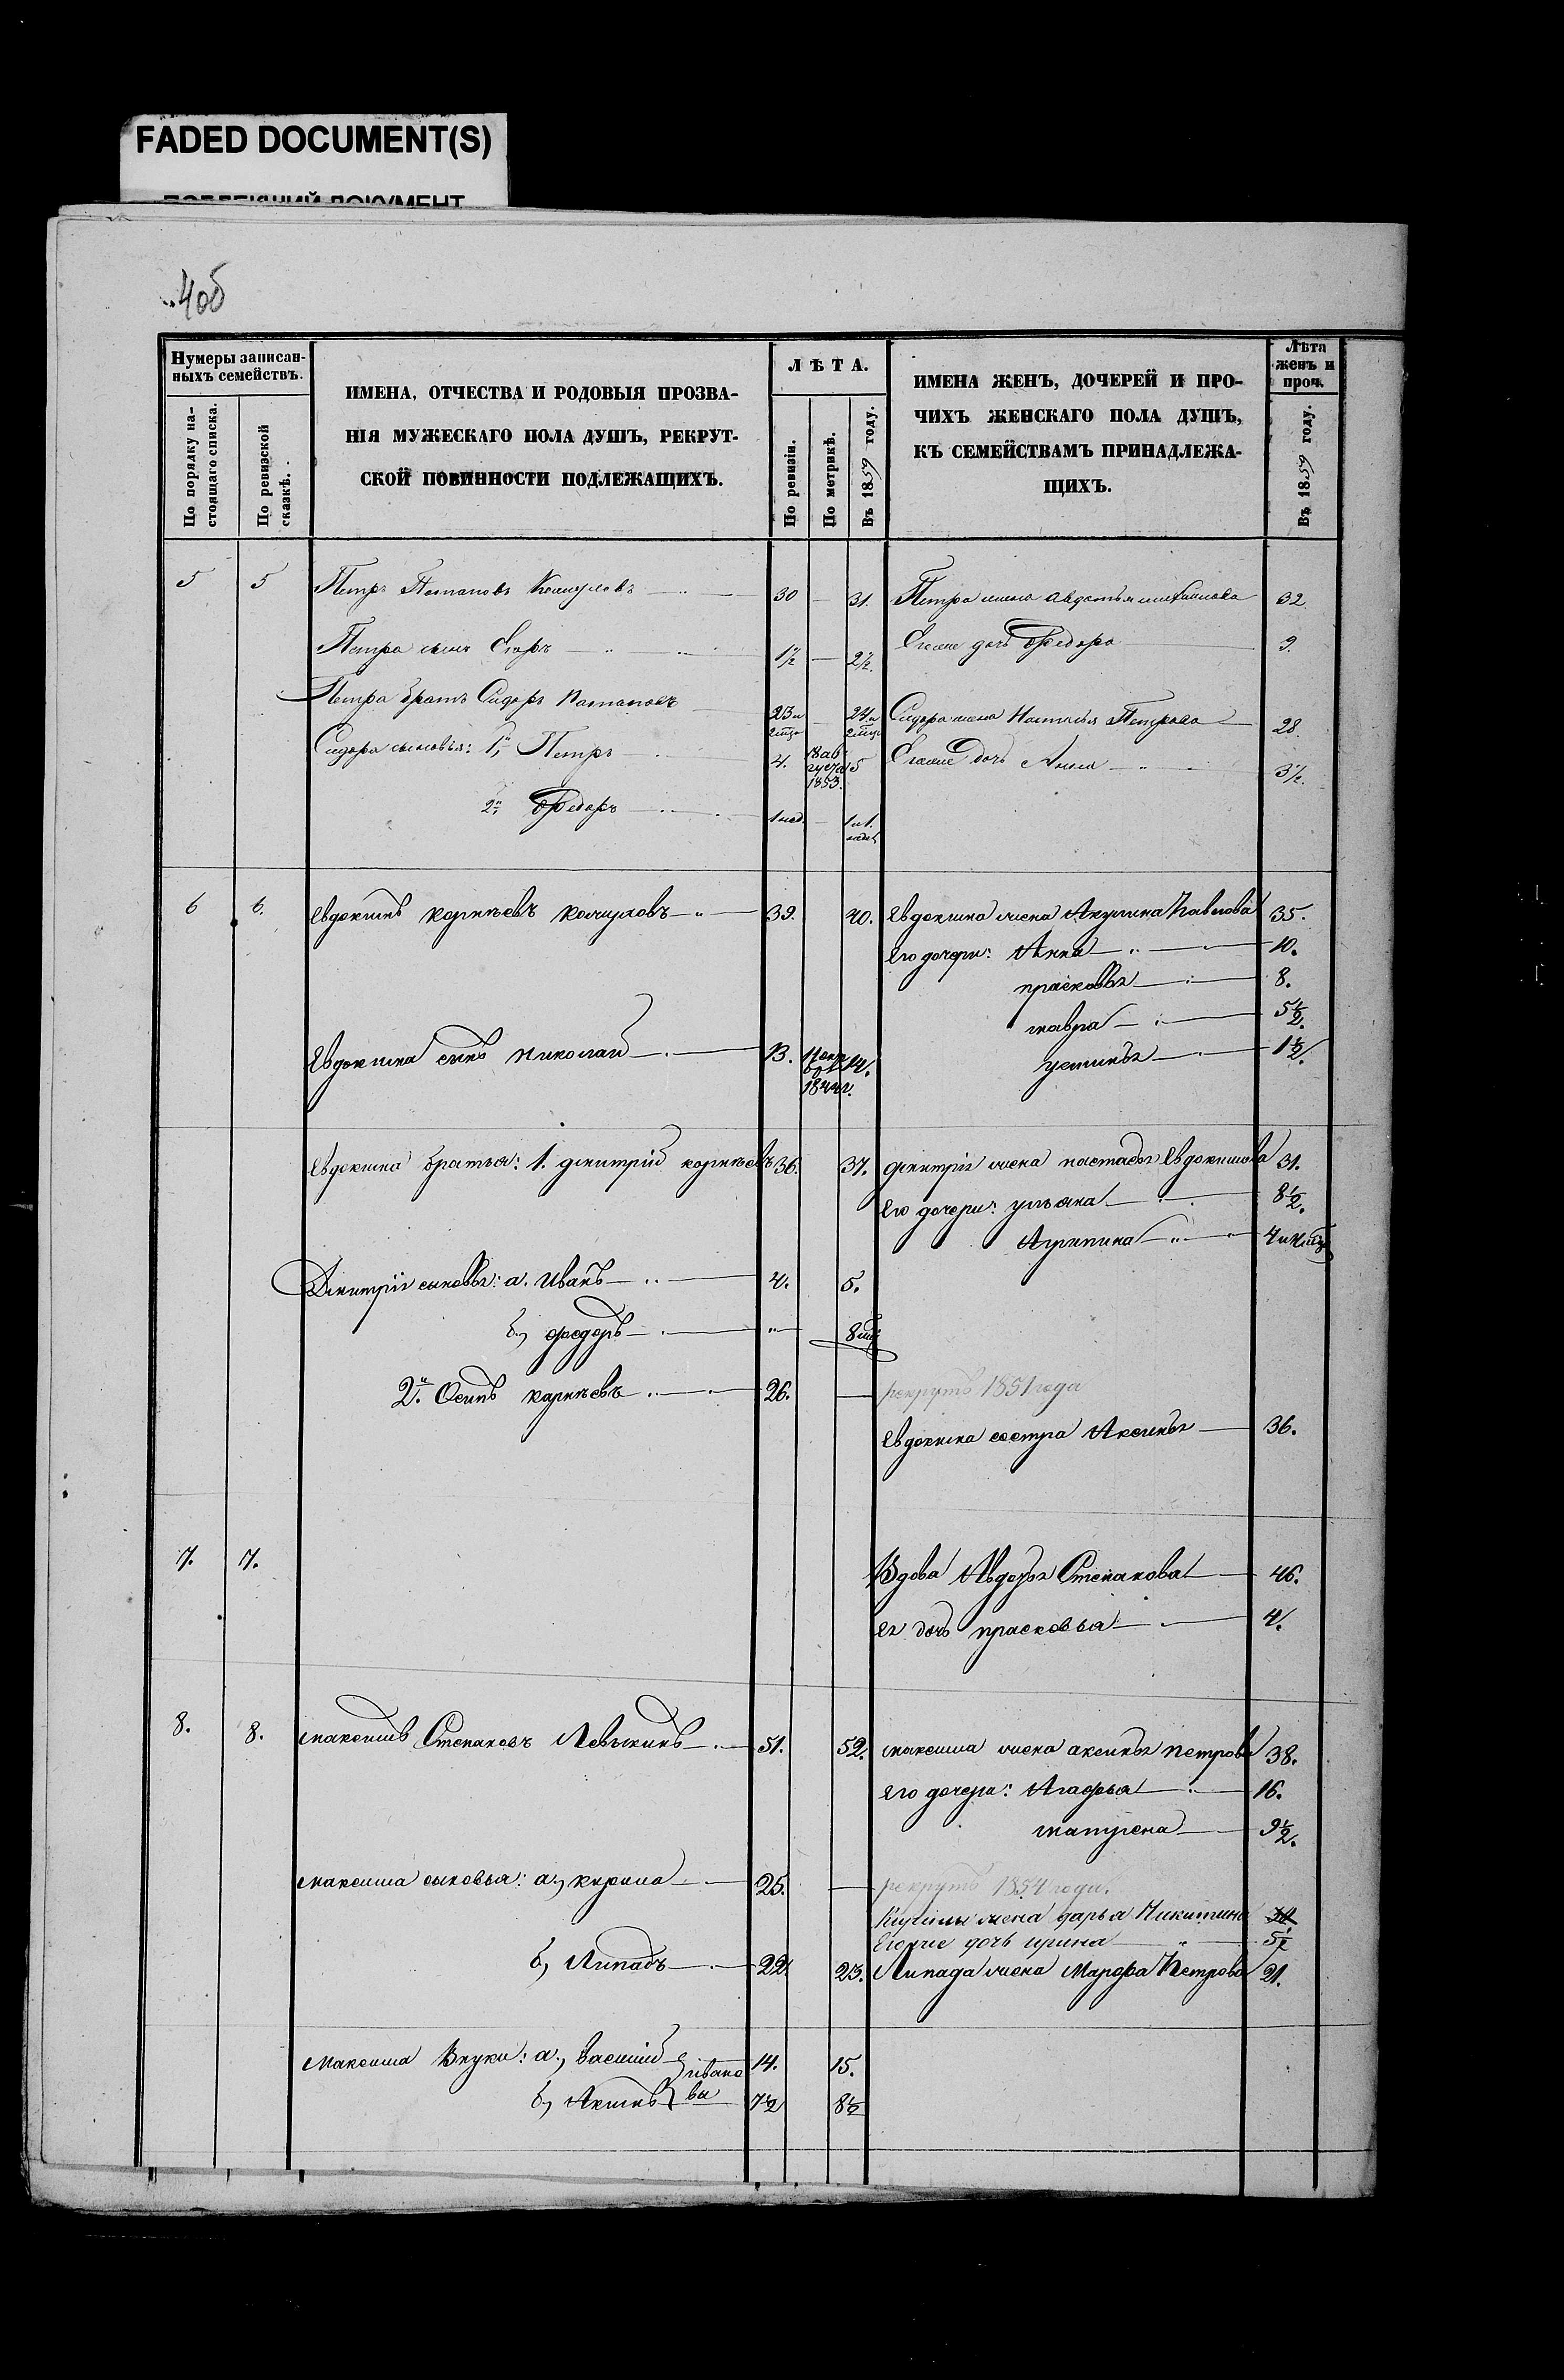 FADED DOCUMENT(S)
4об
Нумеры записан-
ныхъ семействъ.
По порядку на-
стоящаго списка.
По ревизской
сказкѣ.
ИМЕНА, ОТЧЕСТВА И РОДОВЫЯ ПРОЗВА-
НІЯ МУЖЕСКАГО ПОЛА ДУШЪ, РЕКРУТ-
СКОЙ ПОВИННОСТИ ПОДЛЕЖАЩИХЪ.
ЛѢТА.
По ревизіи.
По метрикѣ.
Въ 1859 году.
ИМЕНА ЖЕНЪ, ДОЧЕРЕЙ И ПРО-
ЧИХЪ ЖЕНСКАГО ПОЛА ДУШЪ,
КЪ СЕМЕЙСТВАМЪ ПРИНАДЛЕЖА-
ЩИХЪ.
Лѣта
женъ и
проч.
Въ 1859 году.
5 5 Петръ Потаповъ 30 — 31. Петра жена Авдотья 32
Петра сынъ Егоръ 1½ — 2½. Егоже дочь Федора 9.
Петра братъ Сидоръ Потаповъ 23 и — 24 и Сидора жена Наталья Петрова 28
Сидора сыновья: 1, Петръ 4. 18 ав-
густа
1853. 5 Егоже дочь Анна 3½.
2, Федоръ 1 нед. — 1 и 1.
недел
6 6. Евдокимъ Корнѣевъ 39. 40. Евдокима жена Акулина Павлова 35.
Его дочери: Анна 10.
прасковья 8.
мавра 5½.
Евдокима сынъ николай 13. 1844 г. 14. устинья 1½.
Евдокима братья: 1. дмитрій корнѣевъ 36. 37. дмитрія жена настасья Евдокимова 31.
Его дочери: ульяна 8½.
Агрипина
Дмитрія сыновья: а. иванъ 4. 5.
б, федоръ 8 мц
2. Осипъ карнѣевъ 26. — рекрутъ 1851 года
Евдокима сестра Аксинья 36.
7. 7. Вдова Авдотья Степанова 46.
Ея дочь прасковья 4.
8. 8. максимъ Степановъ Левыкинъ 51. 52. максима жена аксинья петрова 38.
Его дочери: Агафья 16.
матрена 9½.
максима сыновья: а, кирила 25. — рекрутъ 1854 года.
Кирилы жена дарья Никитина
Его же дочь ирина 5½
б, Липадъ 22. 23. Липада жена Марфа Петрова 21.
максима Внуки: а, Василій 14. 15.
ивано
вы
б, Акимъ 7½ 8½